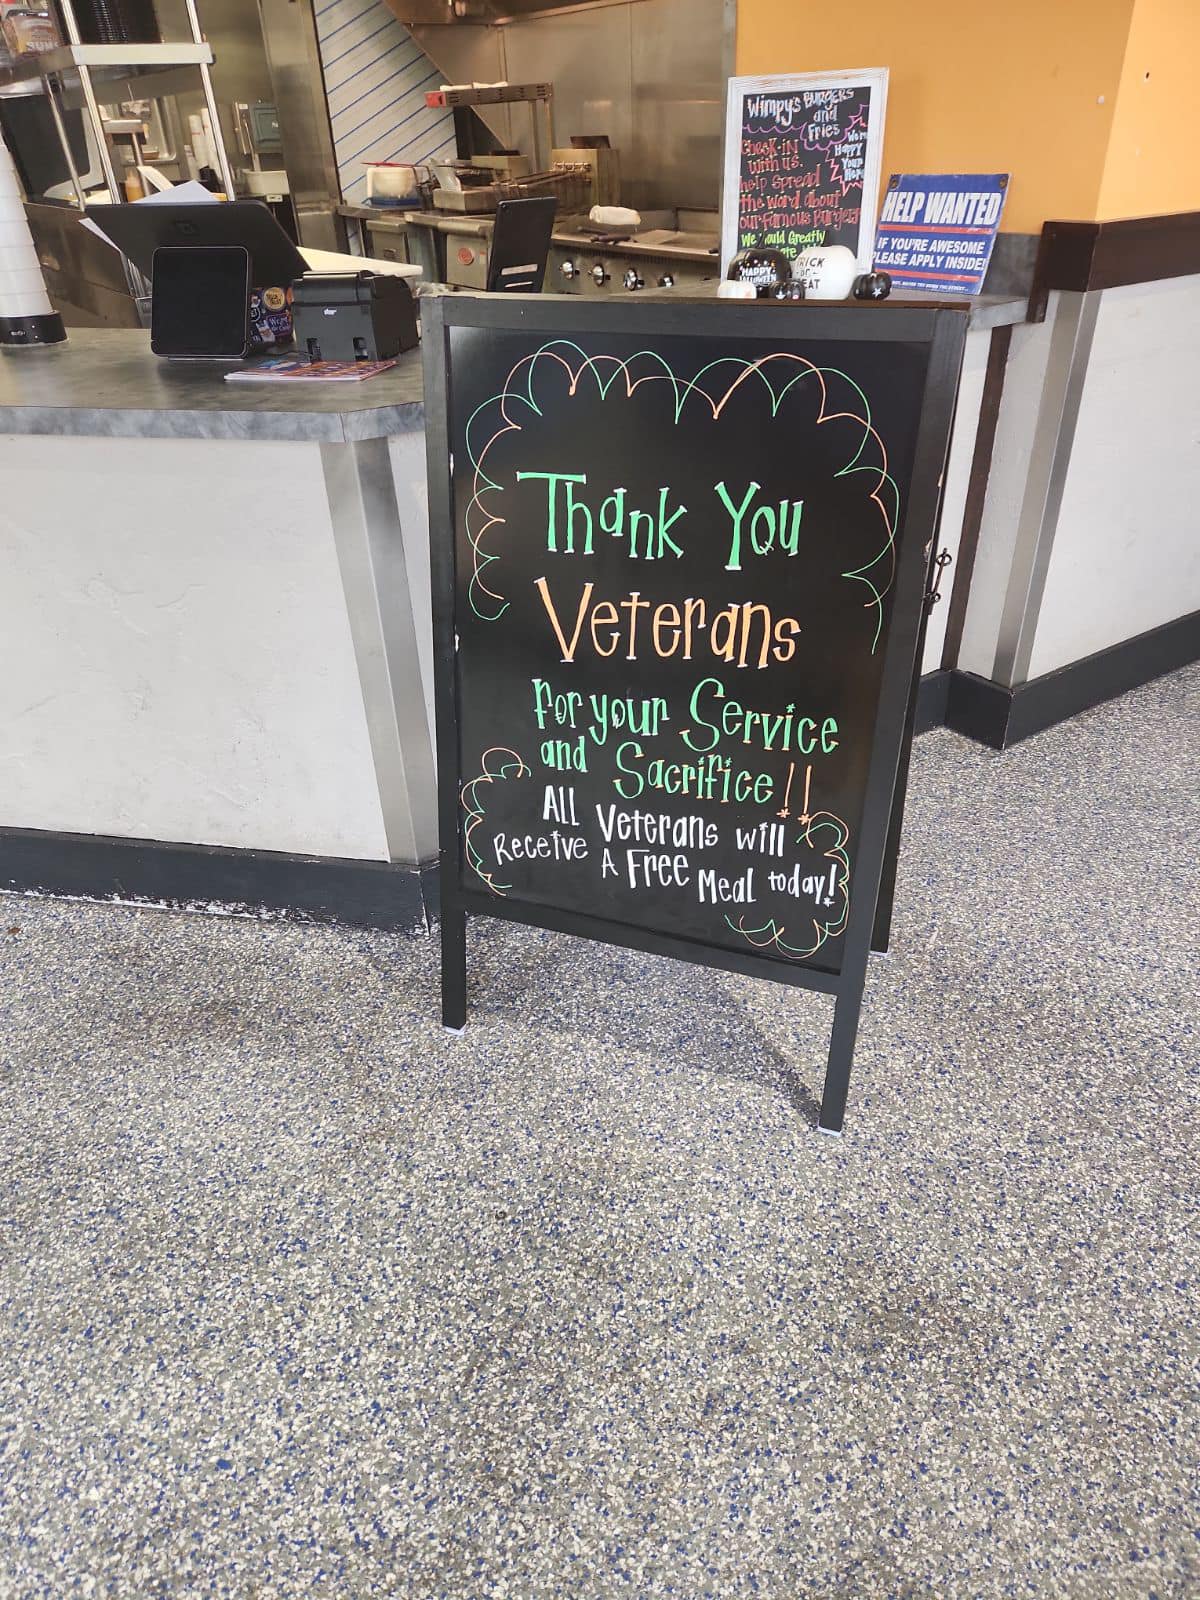 Wimpy's Burgers
and
Fries
We're
Happy
Your
Here
Check-in
with us.
help spread
the word about
our Famous Burgers
We Would Greatly
HELP WANTED
IF YOU'RE AWESOME
PLEASE APPLY INSIDE!
HAPPY
HALLOWEEN
TRICK
-OR-
TREAT
star
Thank You
Veterans
For your Service
and Sacrifice!!
ALL Veterans will
Receive A Free Meal today!